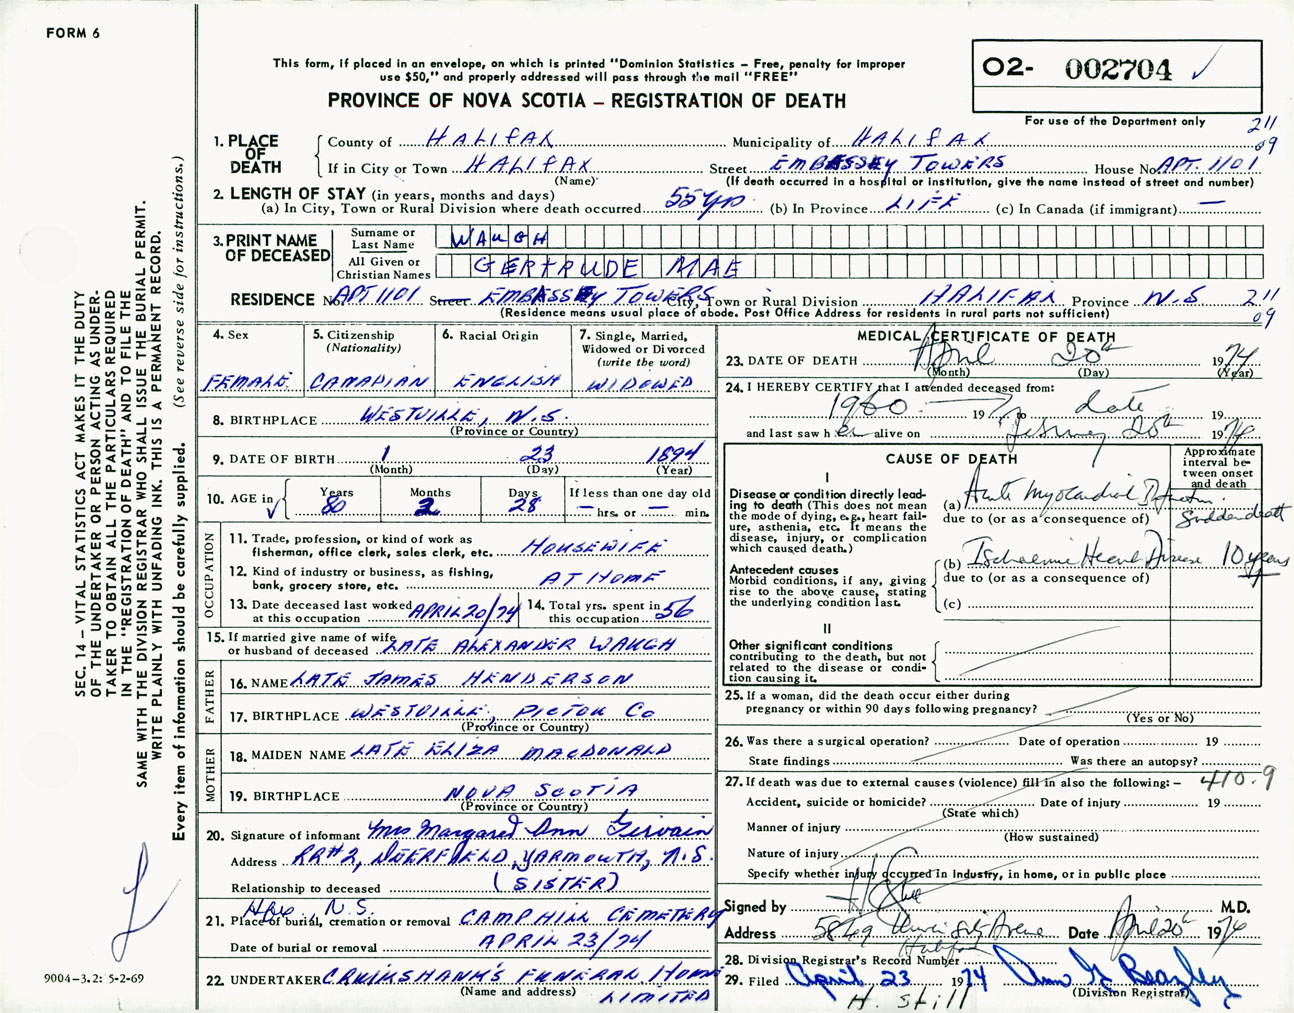 FORM 6
This form, if placed in an envelope, on which is printed "Dominion Statistics – Free, penalty for improper
use $50," and properly addressed will pass through the mail "FREE"
PROVINCE OF NOVA SCOTIA – REGISTRATION OF DEATH
O2- 002704 ✓
For use of the Department only
211
09
SEC. 14 – VITAL STATISTICS ACT MAKES IT THE DUTY
OF THE UNDERTAKER OR PERSON ACTING AS UNDER-
TAKER TO OBTAIN ALL THE PARTICULARS REQUIRED
IN THE "REGISTRATION OF DEATH" AND TO FILE THE
SAME WITH THE DIVISION REGISTRAR WHO SHALL ISSUE THE BURIAL PERMIT.
WRITE PLAINLY WITH UNFADING INK. THIS IS A PERMANENT RECORD.
Every item of information should be carefully supplied. (See reverse side for instructions.)
1. PLACE OF DEATH
County of HALIFAX Municipality of HALIFAX
If in City or Town HALIFAX Street EMBASSEY TOWERS House No. APT. 1101
(Name) (If death occurred in a hospital or institution, give the name instead of street and number)
2. LENGTH OF STAY (in years, months and days)
(a) In City, Town or Rural Division where death occurred 55 yrs (b) In Province LIFE (c) In Canada (if immigrant) —
3. PRINT NAME OF DECEASED
Surname or Last Name WAUGH
All Given or Christian Names GERTRUDE MAE
RESIDENCE No. APT 1101 Street EMBASSEY TOWERS City, Town or Rural Division HALIFAX Province N.S 211
(Residence means usual place of abode. Post Office Address for residents in rural parts not sufficient) 09
4. Sex
FEMALE
5. Citizenship (Nationality)
CANADIAN
6. Racial Origin
ENGLISH
7. Single, Married, Widowed or Divorced (write the word)
WIDOWED
8. BIRTHPLACE WESTVILLE, N.S.
(Province or Country)
9. DATE OF BIRTH 1 23 1894
(Month) (Day) (Year)
10. AGE in Years 80 Months 2 Days 28 If less than one day old — hrs. or — min.
OCCUPATION
11. Trade, profession, or kind of work as fisherman, office clerk, sales clerk, etc. HOUSEWIFE
12. Kind of industry or business, as fishing, bank, grocery store, etc. AT HOME
13. Date deceased last worked at this occupation APRIL 20/74 14. Total yrs. spent in this occupation 56
15. If married give name of wife or husband of deceased LATE ALEXANDER WAUGH
FATHER
16. NAME LATE JAMES HENDERSON
17. BIRTHPLACE WESTVILLE, PICTOU CO
(Province or Country)
MOTHER
18. MAIDEN NAME LATE ELIZA MACDONALD
19. BIRTHPLACE NOVA SCOTIA
(Province or Country)
20. Signature of informant Mrs Margaret Ann Gervain
Address RR#2, DEERFIELD, YARMOUTH, N.S.
Relationship to deceased (SISTER)
Hfx, N.S.
21. Place of burial, cremation or removal CAMPHILL CEMETERY
Date of burial or removal APRIL 23/74
22. UNDERTAKER CRUIKSHANK'S FUNERAL HOME
(Name and address) LIMITED
9004–3.2: 5-2-69
MEDICAL CERTIFICATE OF DEATH
23. DATE OF DEATH April 20th 1974
(Month) (Day) (Year)
24. I HEREBY CERTIFY that I attended deceased from:
1960 19 to date 19
and last saw her alive on February 20th 1974
CAUSE OF DEATH
Approximate interval between onset and death
I
Disease or condition directly leading to death (This does not mean the mode of dying, e.g., heart failure, asthenia, etc. It means the disease, injury, or complication which caused death.)
(a) Acute Myocardial Infarction. Sudden death
due to (or as a consequence of)
Antecedent causes
Morbid conditions, if any, giving rise to the above cause, stating the underlying condition last.
(b) Ischaemic Heart Disease 10 years +
due to (or as a consequence of)
(c)
II
Other significant conditions
contributing to the death, but not related to the disease or condition causing it.
25. If a woman, did the death occur either during
pregnancy or within 90 days following pregnancy?
(Yes or No)
26. Was there a surgical operation? Date of operation 19
State findings Was there an autopsy?
27. If death was due to external causes (violence) fill in also the following: – 410.9
Accident, suicide or homicide? Date of injury 19
(State which)
Manner of injury
(How sustained)
Nature of injury
Specify whether injury occurred in industry, in home, or in public place
Signed by H Still M.D.
Address 5849 University Avenue Date April 20th 1974
Halifax
28. Division Registrar's Record Number
29. Filed April 23 1974 Ann G Beazley
(Division Registrar)
H. Still